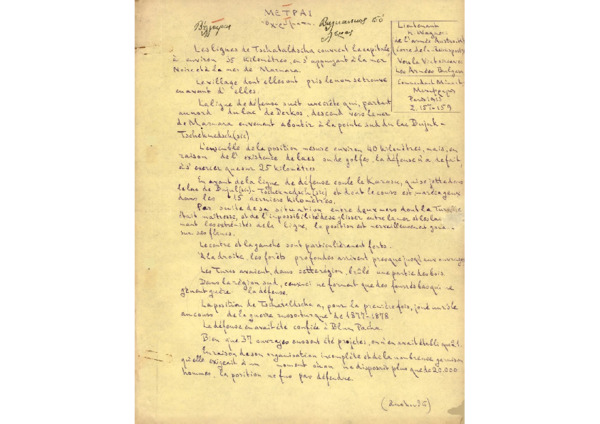 ΜΕΤΡΑΙ
Lieutenant
H. Wagner
de l'armée Autrichi
Vers la Victoire avec
les Armées Bulgares
Paris 1913
2: 157-159
Les lignes de Tschataldscha couvrent la capitale
à environ 35 Kilomètres, en s'appuyant à la mer
Noire et à la mer de Marmara.
Le village dont elles ont pris le nom se trouve
en avant d'elles.
La ligne de défense suit une crête qui, partant
au nord du lac de Derkos, descend vers la mer
de Marmara en venant aboutir à la pointe sud du lac
Tschekmedsch (sic)
L'ensemble de la position mesure environ 40 kilomètres, mais, en
raison de l'existence de lacs ou de golfe, la défense n'a de fait,
à s'exercer que sur 25 kilomètres
En avant de la ligne de défense coule le Karasu, qui se jette dans
le lac de (sic) - Tschekmedsche (sic) et dont le cours est marécageux
dans les 15 derniers kilomètres.
Par suite de sa situation entre deux mers dont la Turquie
était maîtresse, et de l'impossibilité de se glisser entre la mer et
les extrémités de la ligne, la position est merveilleusement
sur ses flancs.
Le centre et la gauche sont particulièrement forts.
À la droite, les forêts profondes arrivent presque jusqu'aux ouvrages
Les Turcs avaient, dans cette région, brûlé une partie des bois
Dans la région sud, ceux-ci ne forment que des fonds qui ne
gênent guère la défense.
La position de Tschataldscha, pour la première fois, joua un rôle
au cours de la guerre russo-turque de 1877-1878
La défense en avait été confiée à Blum Pacha
Bien que 37 ouvrages eussent été projetés, on n'en avait établi que
En raison de son organisation incomplète et de la nombreuse garnison
qu'elle exigeait à un moment où on ne disposait plus que de 20.000
hommes, la position ne fut pas défendue.